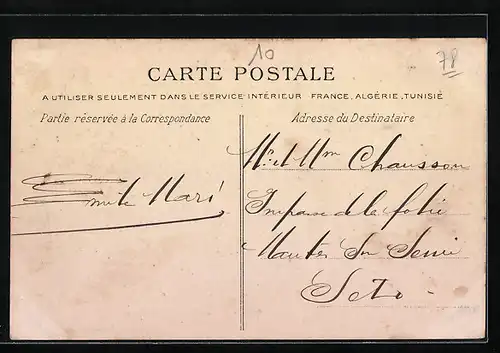 10
78
CARTE POSTALE
A UTILISER SEULEMENT DANS LE SERVICE INTÉRIEUR FRANCE, ALGÉRIE, TUNISIE
Partie réservée à la Correspondance
Adresse du Destinataire
Emile Mari
Mr et Mme Chausson
Impasse de la folie
Mantes Sur Seine